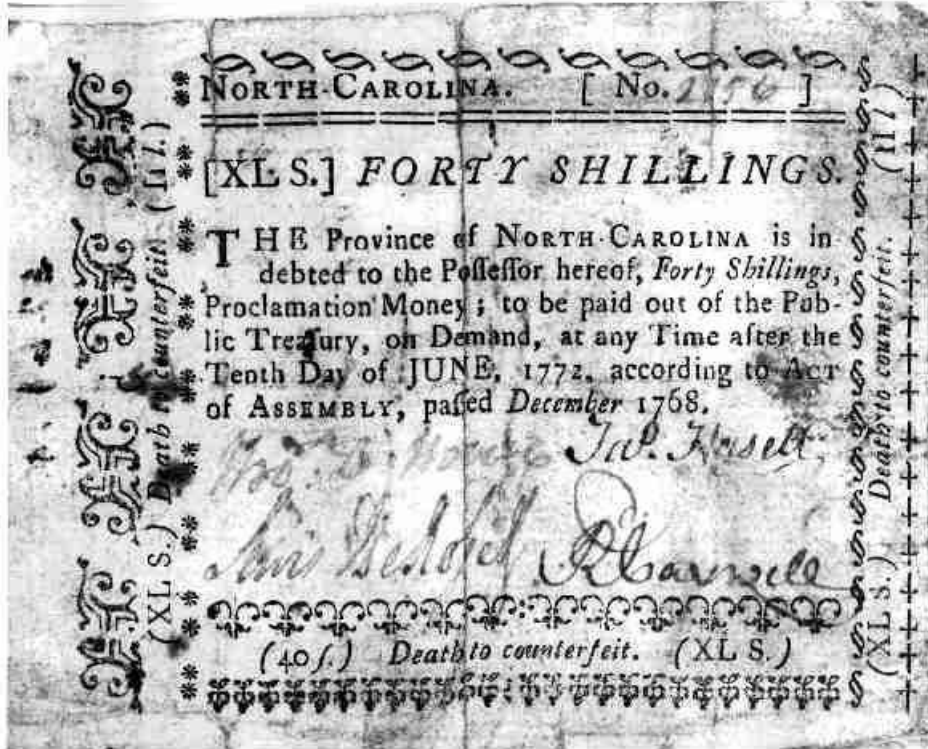 NORTH-CAROLINA. [ No. 2156 ]
[XL S.] FORTY SHILLINGS.
THE Province of NORTH-CAROLINA is in
debted to the Poſſeſſor hereof, Forty Shillings,
Proclamation Money; to be paid out of the Pub-
lic Treaſury, on Demand, at any Time after the
Tenth Day of JUNE, 1772, according to ACT
of ASSEMBLY, paſſed December 1768.
Lewis DeRosset
RCaswell
(40ſ.) Death to counterfeit. (XL S.)
(XL S.) Death to counterfeit. (II l.)
(XL S.) Death to counterfeit. (II l.)